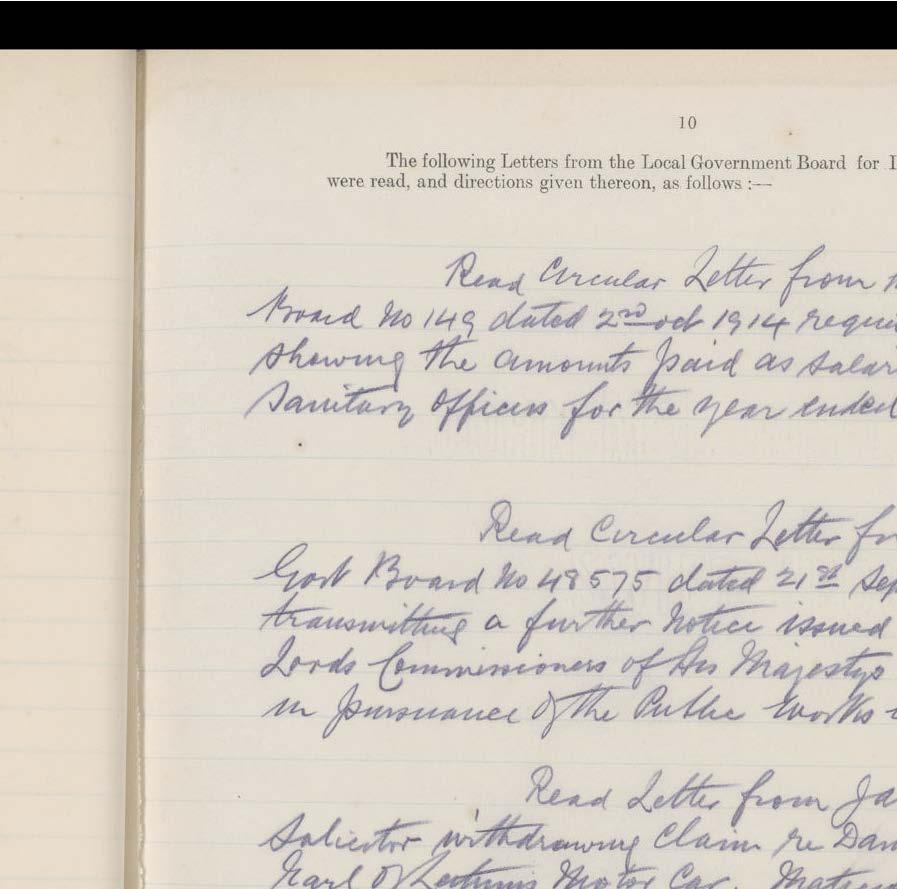 10
The following Letters from the Local Government Board for I
were read, and directions given thereon, as follows :—
Read Circular Letter from
Board No 149 dated 2nd Oct 1914 requi
showing the amounts paid as salar
Sanitary Officers for the year ended
Read Circular Letter fr
Govt Board No 48575 dated 21st Sep
transmitting a further Notice issued
Lords Commissioners of His Majestys
in pursuance of the Public Works
Read Letter from Ja
Solicitor withdrawing Claim re Dam
Earl of Motor Car.